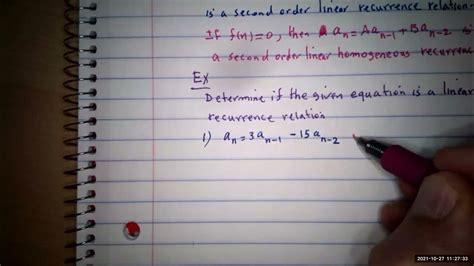 is a second order linear recurrence relation.
If f(n)=0, then a_n = A a_{n-1} + B a_{n-2} is
a second order linear homogeneous recurrence
Ex
Determine if the given equation is a linear
recurrence relation
1) a_n = 3a_{n-1} - 15a_{n-2}
2021-10-27 11:27:33